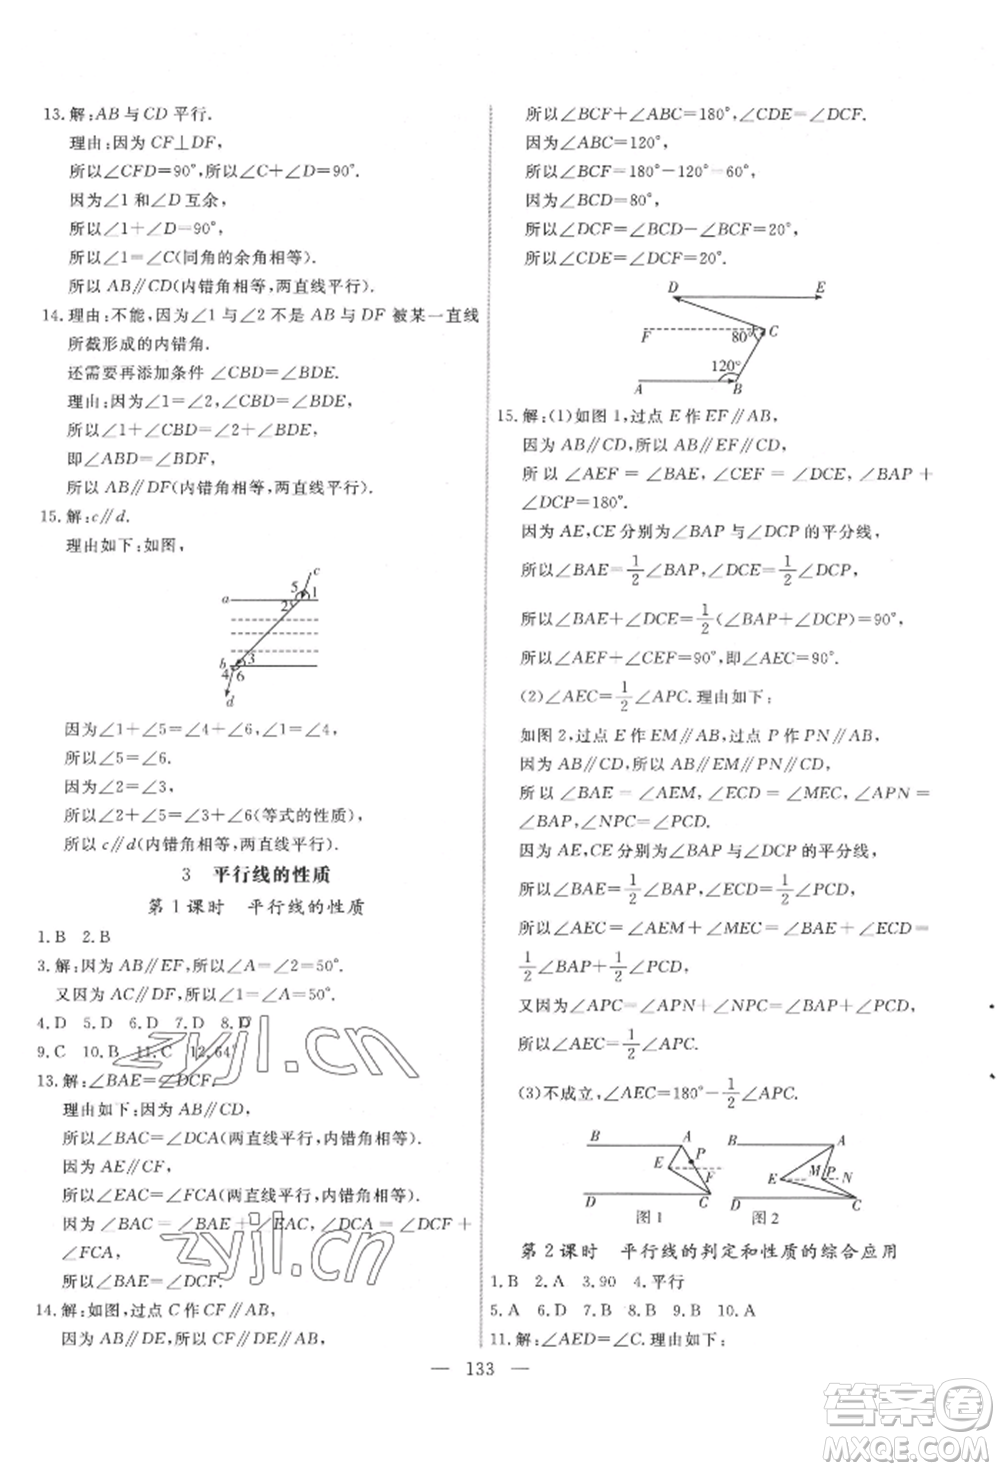 13.解:AB与CD平行.
理由:因为CF⊥DF,
所以∠CFD=90°,所以∠C+∠D=90°.
因为∠1和∠D互余,
所以∠1+∠D=90°,
所以∠1=∠C(同角的余角相等).
所以AB∥CD(内错角相等,两直线平行).
14.理由:不能,因为∠1与∠2不是AB与DF被某一直线
所截形成的内错角.
还需要再添加条件∠CBD=∠BDE.
理由:因为∠1=∠2,∠CBD=∠BDE,
所以∠1+∠CBD=∠2+∠BDE,
即∠ABD=∠BDF,
所以AB∥DF(内错角相等,两直线平行).
15.解:c∥d.
理由如下:如图,
c
5
a
2
1
b
3
4
6
d
因为∠1+∠5=∠4+∠6,∠1=∠4,
所以∠5=∠6.
因为∠2=∠3,
所以∠2+∠5=∠3+∠6(等式的性质)
所以c∥d(内错角相等,两直线平行).
3 平行线的性质
第1课时 平行线的性质
1.B 2.B
3.解:因为AB∥EF,所以∠A=∠2=50°.
又因为AC∥DF,所以∠1=∠A=50°.
4.D 5.D 6.D 7.D 8.D
9.C 10.B 11.C 12.64°
13.解:∠BAE=∠DCF.
理由如下:因为AB∥CD,
所以∠BAC=∠DCA(两直线平行,内错角相等).
因为AE∥CF,
所以∠EAC=∠FCA(两直线平行,内错角相等).
因为∠BAC=∠BAE+∠EAC,∠DCA=∠DCF+
∠FCA,
所以∠BAE=∠DCF.
14.解:如图,过点C作CF∥AB,
因为AB∥DE,所以CF∥DE∥AB,
所以∠BCF+∠ABC=180°,∠CDE=∠DCF.
因为∠ABC=120°,
所以∠BCF=180°-120°=60°.
因为∠BCD=80°,
所以∠DCF=∠BCD-∠BCF=20°,
所以∠CDE=∠DCF=20°.
D E
F 80° C
120°
A B
15.解:(1)如图1,过点E作EF∥AB,
因为AB∥CD,所以AB∥EF∥CD,
所以∠AEF=∠BAE,∠CEF=∠DCE,∠BAP+
∠DCP=180°.
因为AE,CE分别为∠BAP与∠DCP的平分线,
所以∠BAE=1/2∠BAP,∠DCE=1/2∠DCP,
所以∠BAE+∠DCE=1/2(∠BAP+∠DCP)=90°,
所以∠AEF+∠CEF=90°,即∠AEC=90°.
(2)∠AEC=1/2∠APC.理由如下:
如图2,过点E作EM∥AB,过点P作PN∥AB,
因为AB∥CD,所以AB∥EM∥PN∥CD,
所以∠BAE=∠AEM,∠ECD=∠MEC,∠APN=
∠BAP,∠NPC=∠PCD.
因为AE,CE分别为∠BAP与∠DCP的平分线,
所以∠BAE=1/2∠BAP,∠ECD=1/2∠PCD,
所以∠AEC=∠AEM+∠MEC=∠BAE+∠ECD=
1/2∠BAP+1/2∠PCD,
又因为∠APC=∠APN+∠NPC=∠BAP+∠PCD,
所以∠AEC=1/2∠APC.
(3)不成立,∠AEC=180°-1/2∠APC.
B A
E P
F
D C
图1
B A
E M P N
D C
图2
第2课时 平行线的判定和性质的综合应用
1.B 2.A 3.90 4.平行
5.A 6.D 7.B 8.D 9.B 10.A
11.解:∠AED=∠C.理由如下:
— 133 —
zyjl.cn
zyjl.cn
答案圈
MXQE.COM